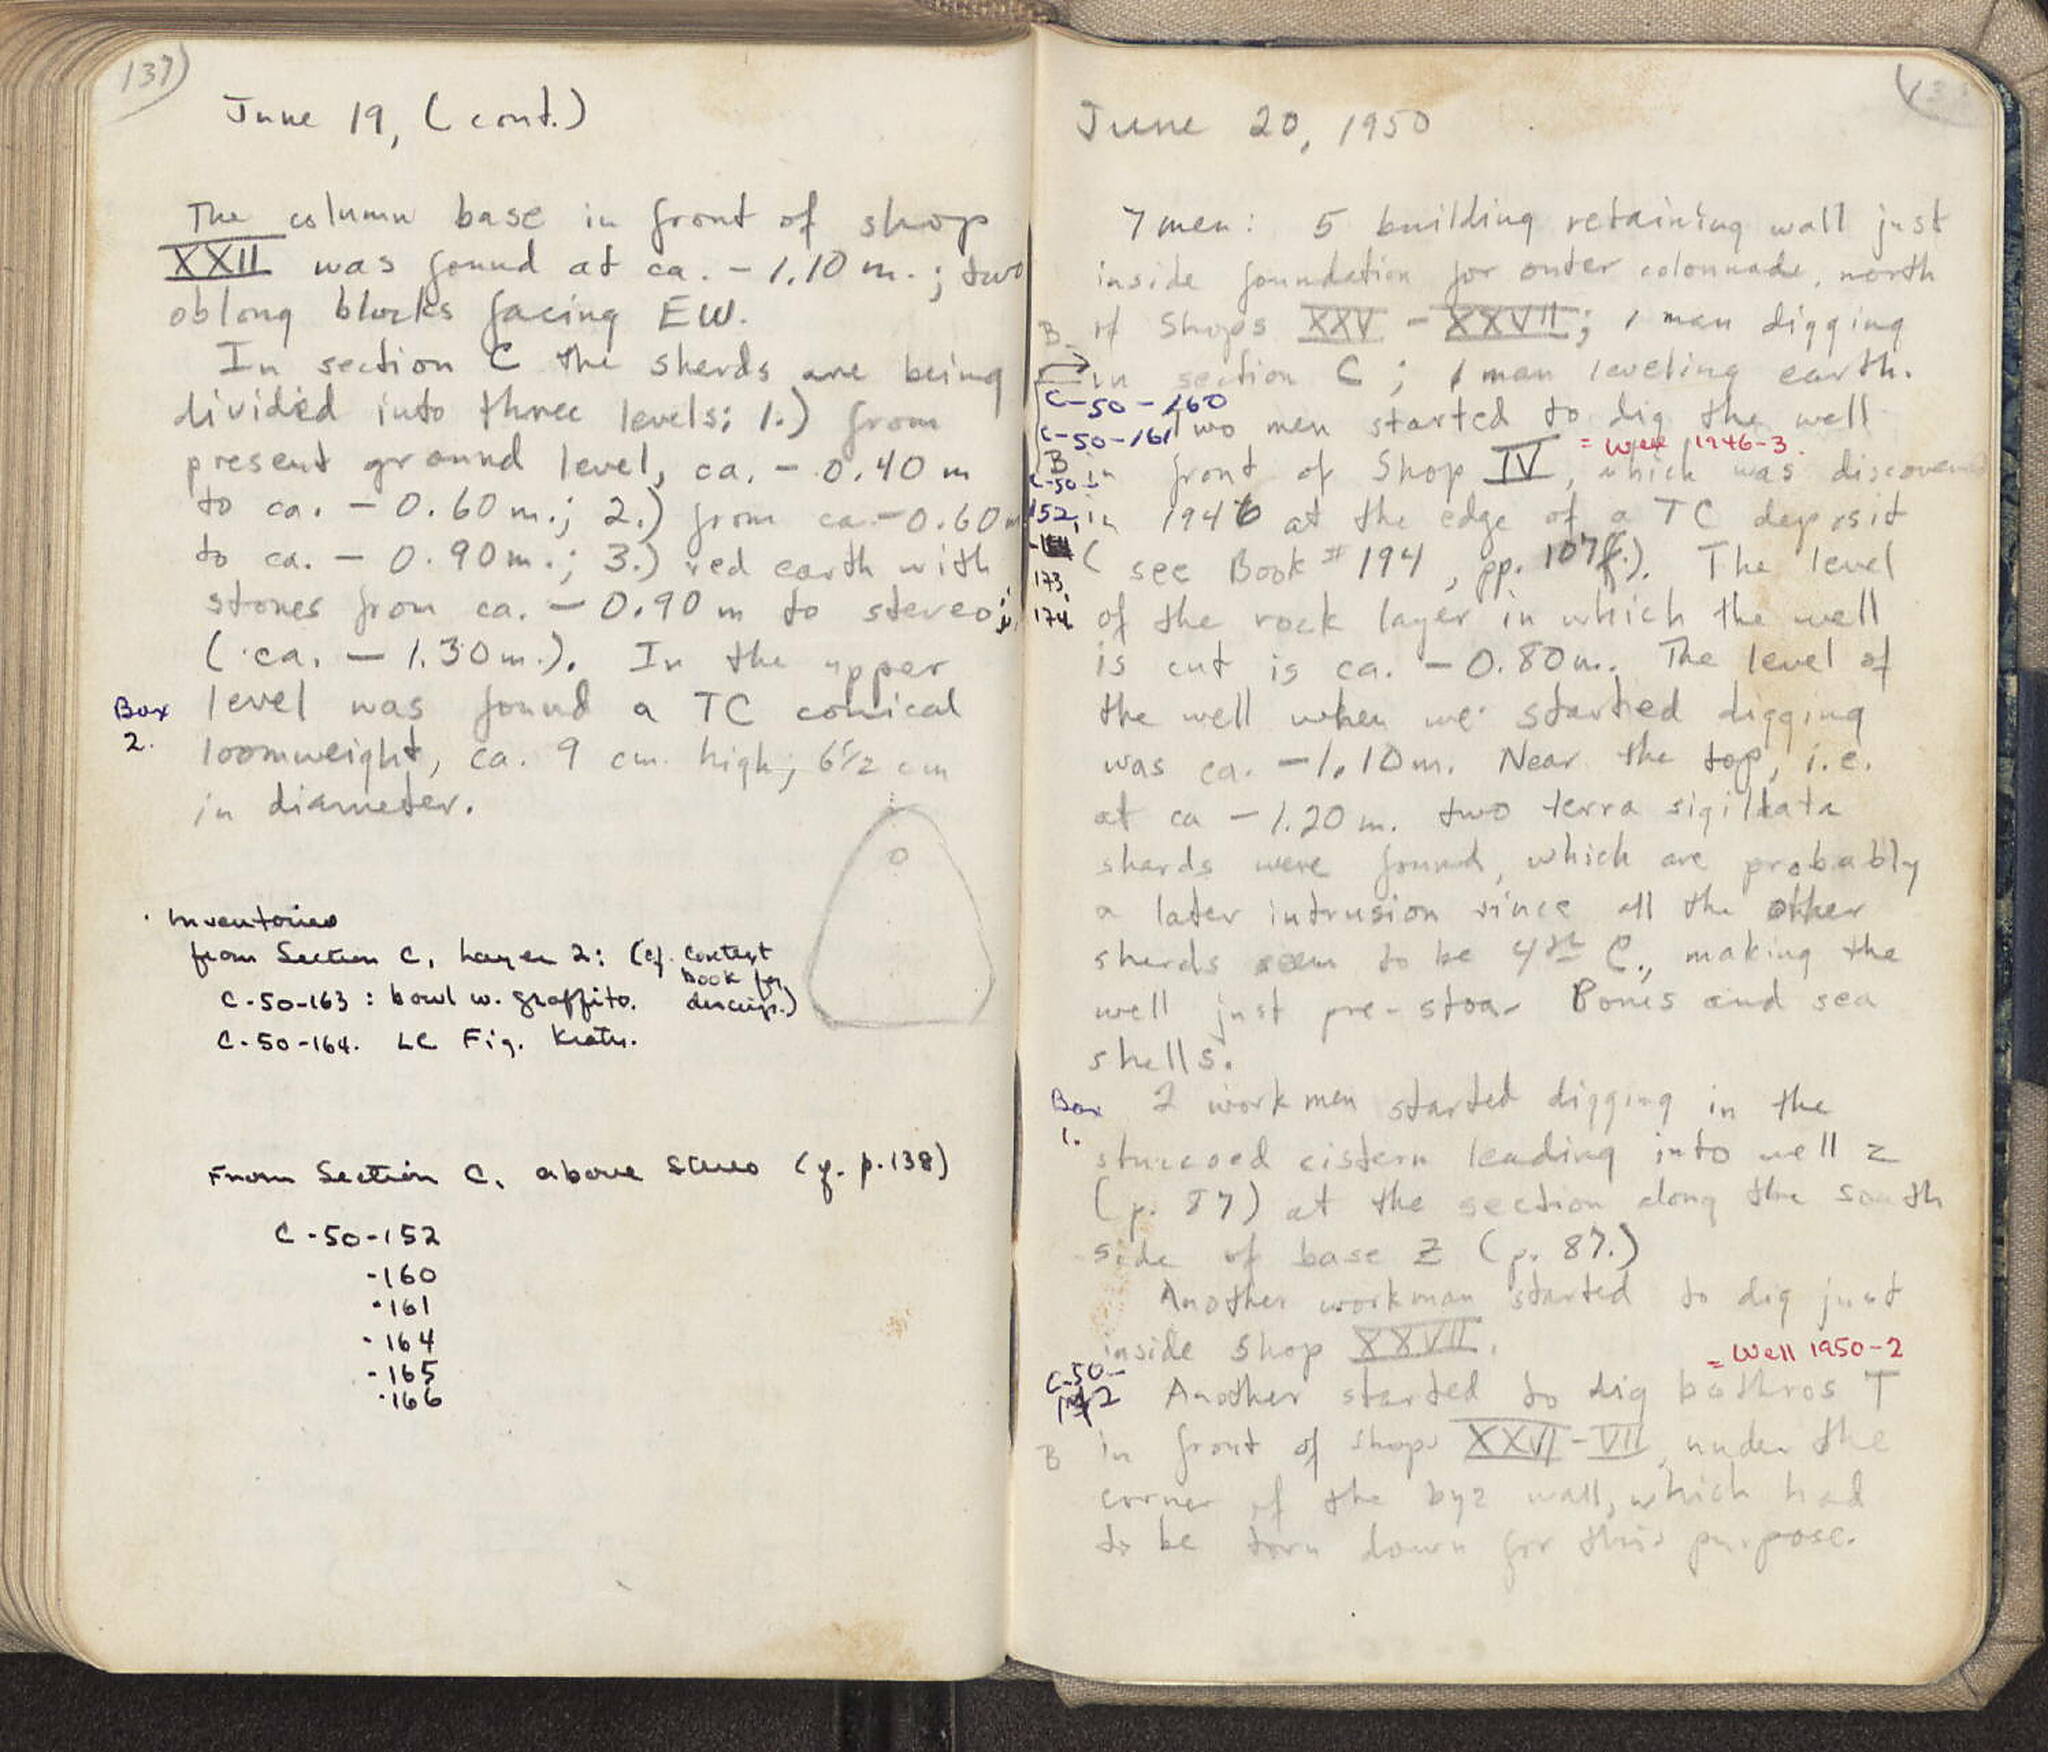 137)
June 19, (cont.)
The column base in front of shop
XXII was found at ca. - 1.10 m.; two
oblong blocks facing EW.
In section C the sherds are being
divided into three levels; 1.) from
present ground level, ca. - 0.40 m
to ca. - 0.60 m.; 2.) from ca. - 0.60 m
to ca. - 0.90 m.; 3.) red earth with
stones from ca. - 0.90 m to stereo
(ca. - 1.30 m.). In the upper
Box level was found a TC conical
2. loomweight, ca. 9 cm. high, 6 1/2 cm
in diameter.
Inventories
from Section C, Layer 2: (cf. context
book for
C-50-163 : bowl w. graffito. descrip.)
C-50-164. LC Fig. Krater.
From Section C, above stereo (cf. p. 138)
C-50-152
-160
-161
-164
-165
-166
June 20, 1950
7 men: 5 building retaining wall just
inside foundation for outer colonnade, north
B. of Shops XXV - XXVII; 1 man digging
in section C; 1 man leveling earth.
C-50-160
C-50-161 Two men started to dig the well
= Well 1946-3.
B
C-50- in front of Shop IV, which was discovered
152, in 1946 at the edge of a TC deposit
(see Book # 194, pp. 107 f.). The level
173,
174 of the rock layer in which the well
is cut is ca. - 0.80 m. The level of
the well when we started digging
was ca. - 1.10 m. Near the top, i.e.
at ca - 1.20 m. two terra sigillata
sherds were found, which are probably
a later intrusion since all the other
sherds seem to be 4th C., making the
well just pre-stoa. Bones and sea
shells.
Box 2 workmen started digging in the
1. stuccoed cistern leading into well z
(p. 87) at the section along the south
side of base Z (p. 87.)
Another workman started to dig just
inside Shop XXVII.
= Well 1950-2
C-50- Another started to dig bothros T
B in front of shops XXVI - VII, under the
corner of the byz wall, which had
to be torn down for this purpose.